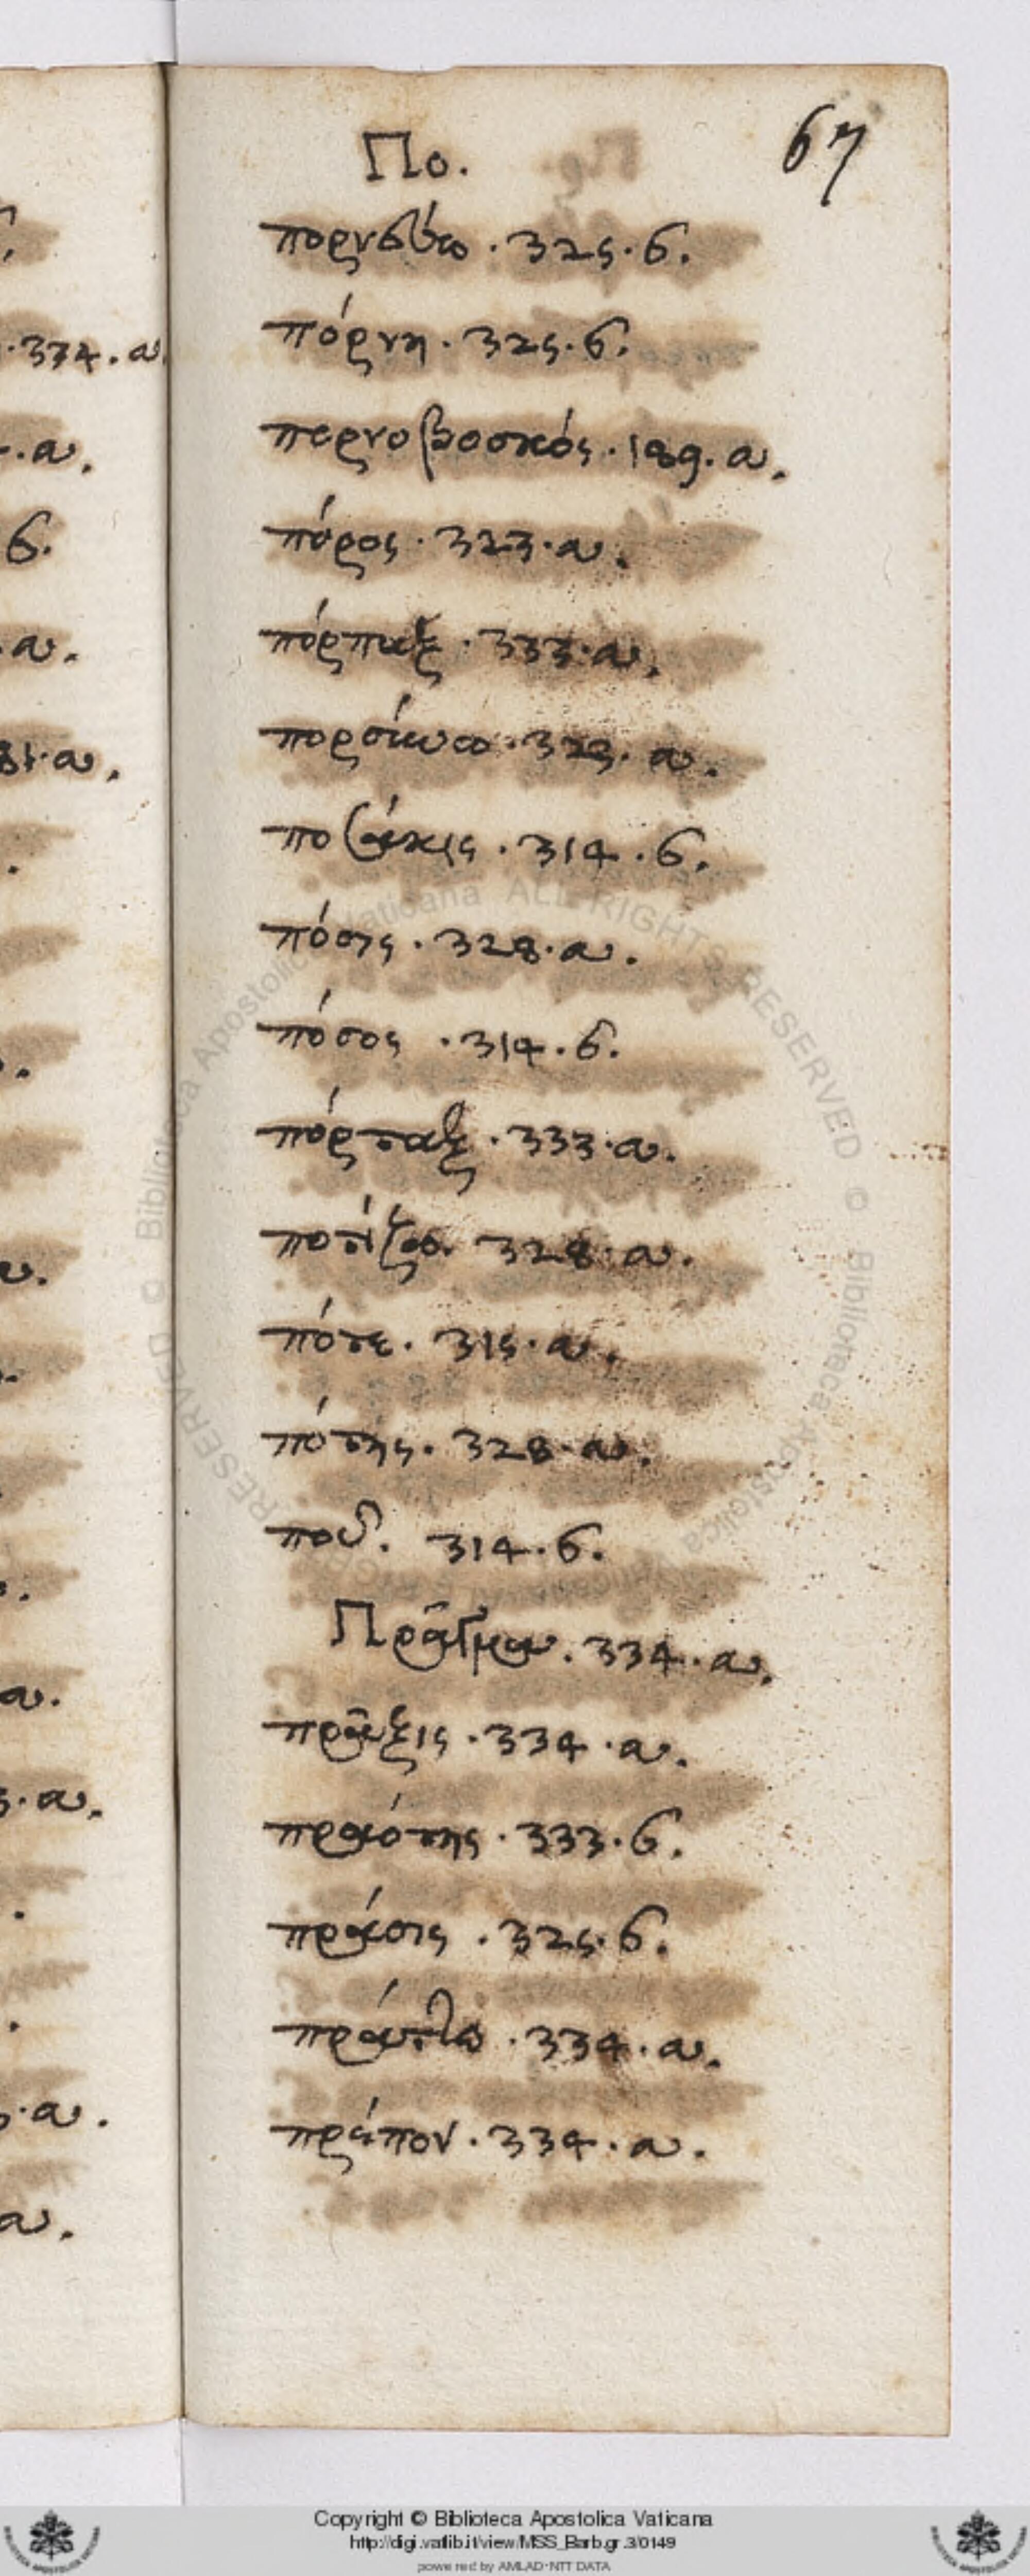 67
Πο.
πορνεύω · 325 · b.
πόρνη · 325 · b.
πορνοβοσκός · 189 · α.
πόρος · 323 · α.
πόρπαξ · 333 · α.
323 · α.
ποσάκις · 314 · b.
πόσις · 328 · α.
πόσος · 314 · b.
πόρπαξ · 333 · α.
ποτίζω · 328 · α.
πότε · 315 · α.
πότης · 328 · α.
ποῦ. 314 · b.
Πρᾶγμα. 334 · α.
πρᾶξις · 334 · α.
πραότης · 333 · b.
πράσις · 325 · b.
πράττω · 334 · α.
πρέπον · 334 · α.
· 374 · α.
· α.
b.
· α.
81 · α.
α.
· α.
· α.
α.
Copyright © Biblioteca Apostolica Vaticana
http://digi.vatlib.it/view/MSS_Barb.gr.3/0149
powered by AMLAD-NTT DATA